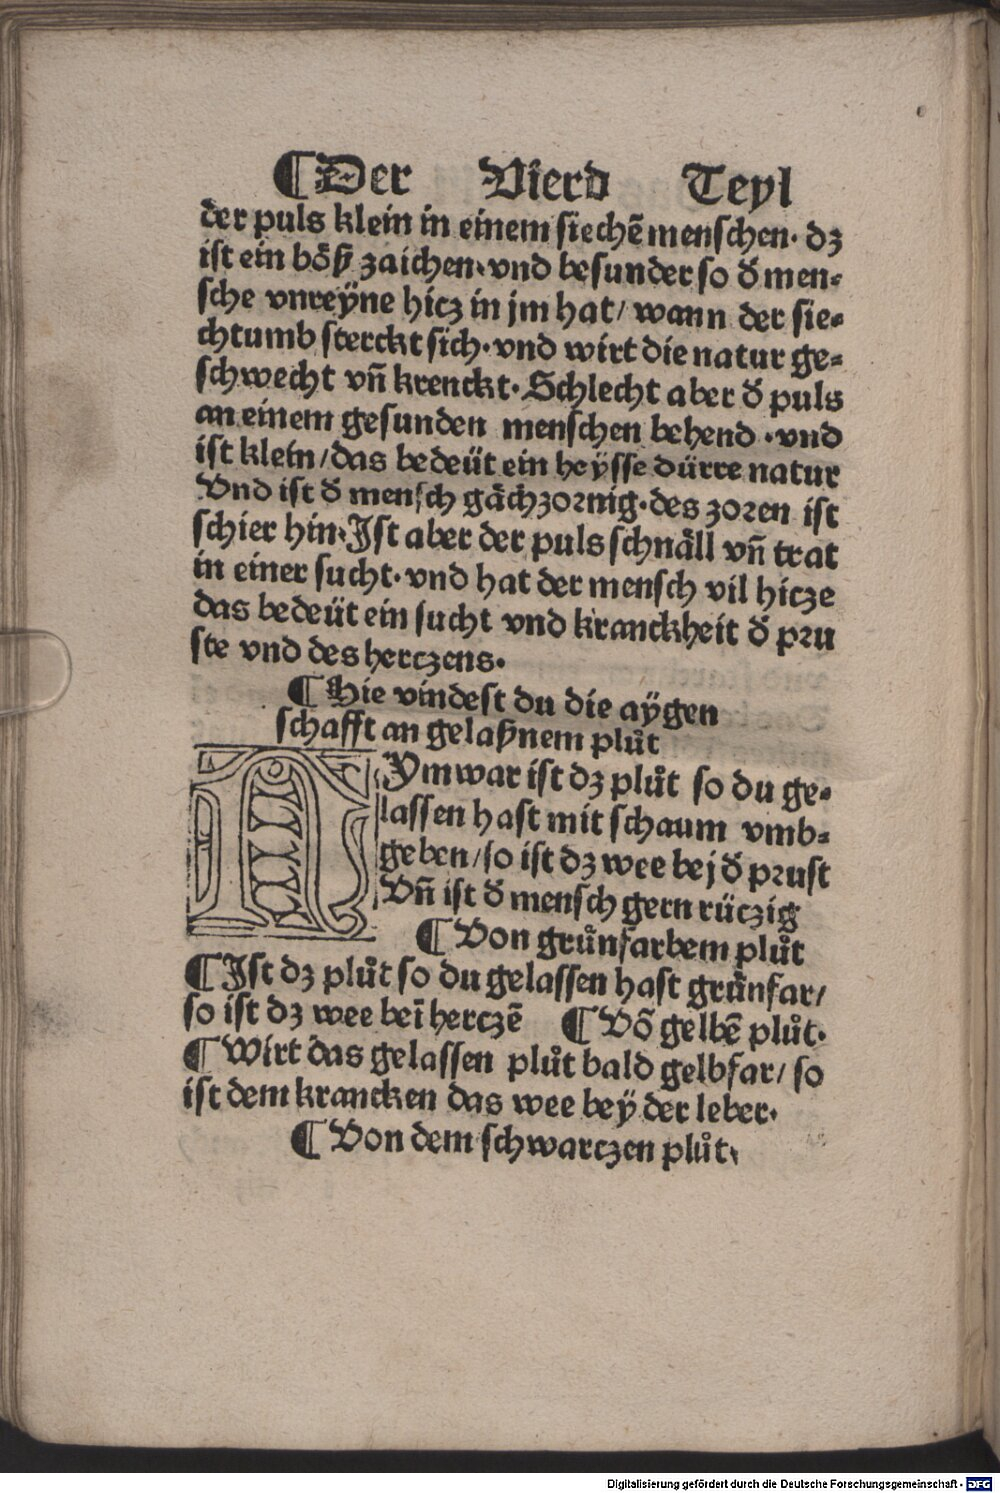 ¶Der Vierd Teyl
der puls klein in einem siechē menschen· dz
ist ein böß zaichen· vnd besunder so d̄ men⸗
sche vnreÿne hicz in jm hat/ wann der sie⸗
chtumb sterckt sich· vnd wirt die natur ge⸗
schwecht vn̄ krenckt· Schlecht aber d̄ puls
an einem gesunden menschen behend · vnd
ist klein/ das bedeüt ein heÿsse dürre natur
Vnd ist d̄ mensch gächzornig· des zoren ist
schier hin· Ist aber der puls schnäll vn̄ trat
in einer sucht· vnd hat der mensch vil hicze
das bedeüt ein sucht vnd kranckheit d̄ pru
ste vnd des herczens·
¶ Hie vindest du die aÿgen
schafft an gelaßnem plůt
NYm war ist dz plůt so du ge⸗
lassen hast mit schaum vmb⸗
geben/ so ist dz wee bej d̄ prust
Vn̄ ist d̄ mensch gern rüczig
¶ Von grůnfarbem plůt
¶ Ist dz plůt so du gelassen hast grůnfar/
so ist dz wee beī herczē ¶ Vō gelbē plůt·
¶ Wirt das gelassen plůt bald gelbfar/ so
ist dem krancken das wee beÿ der leber·
¶ Von dem schwarczen plůt·
Digitalisierung gefördert durch die Deutsche Forschungsgemeinschaft · DFG